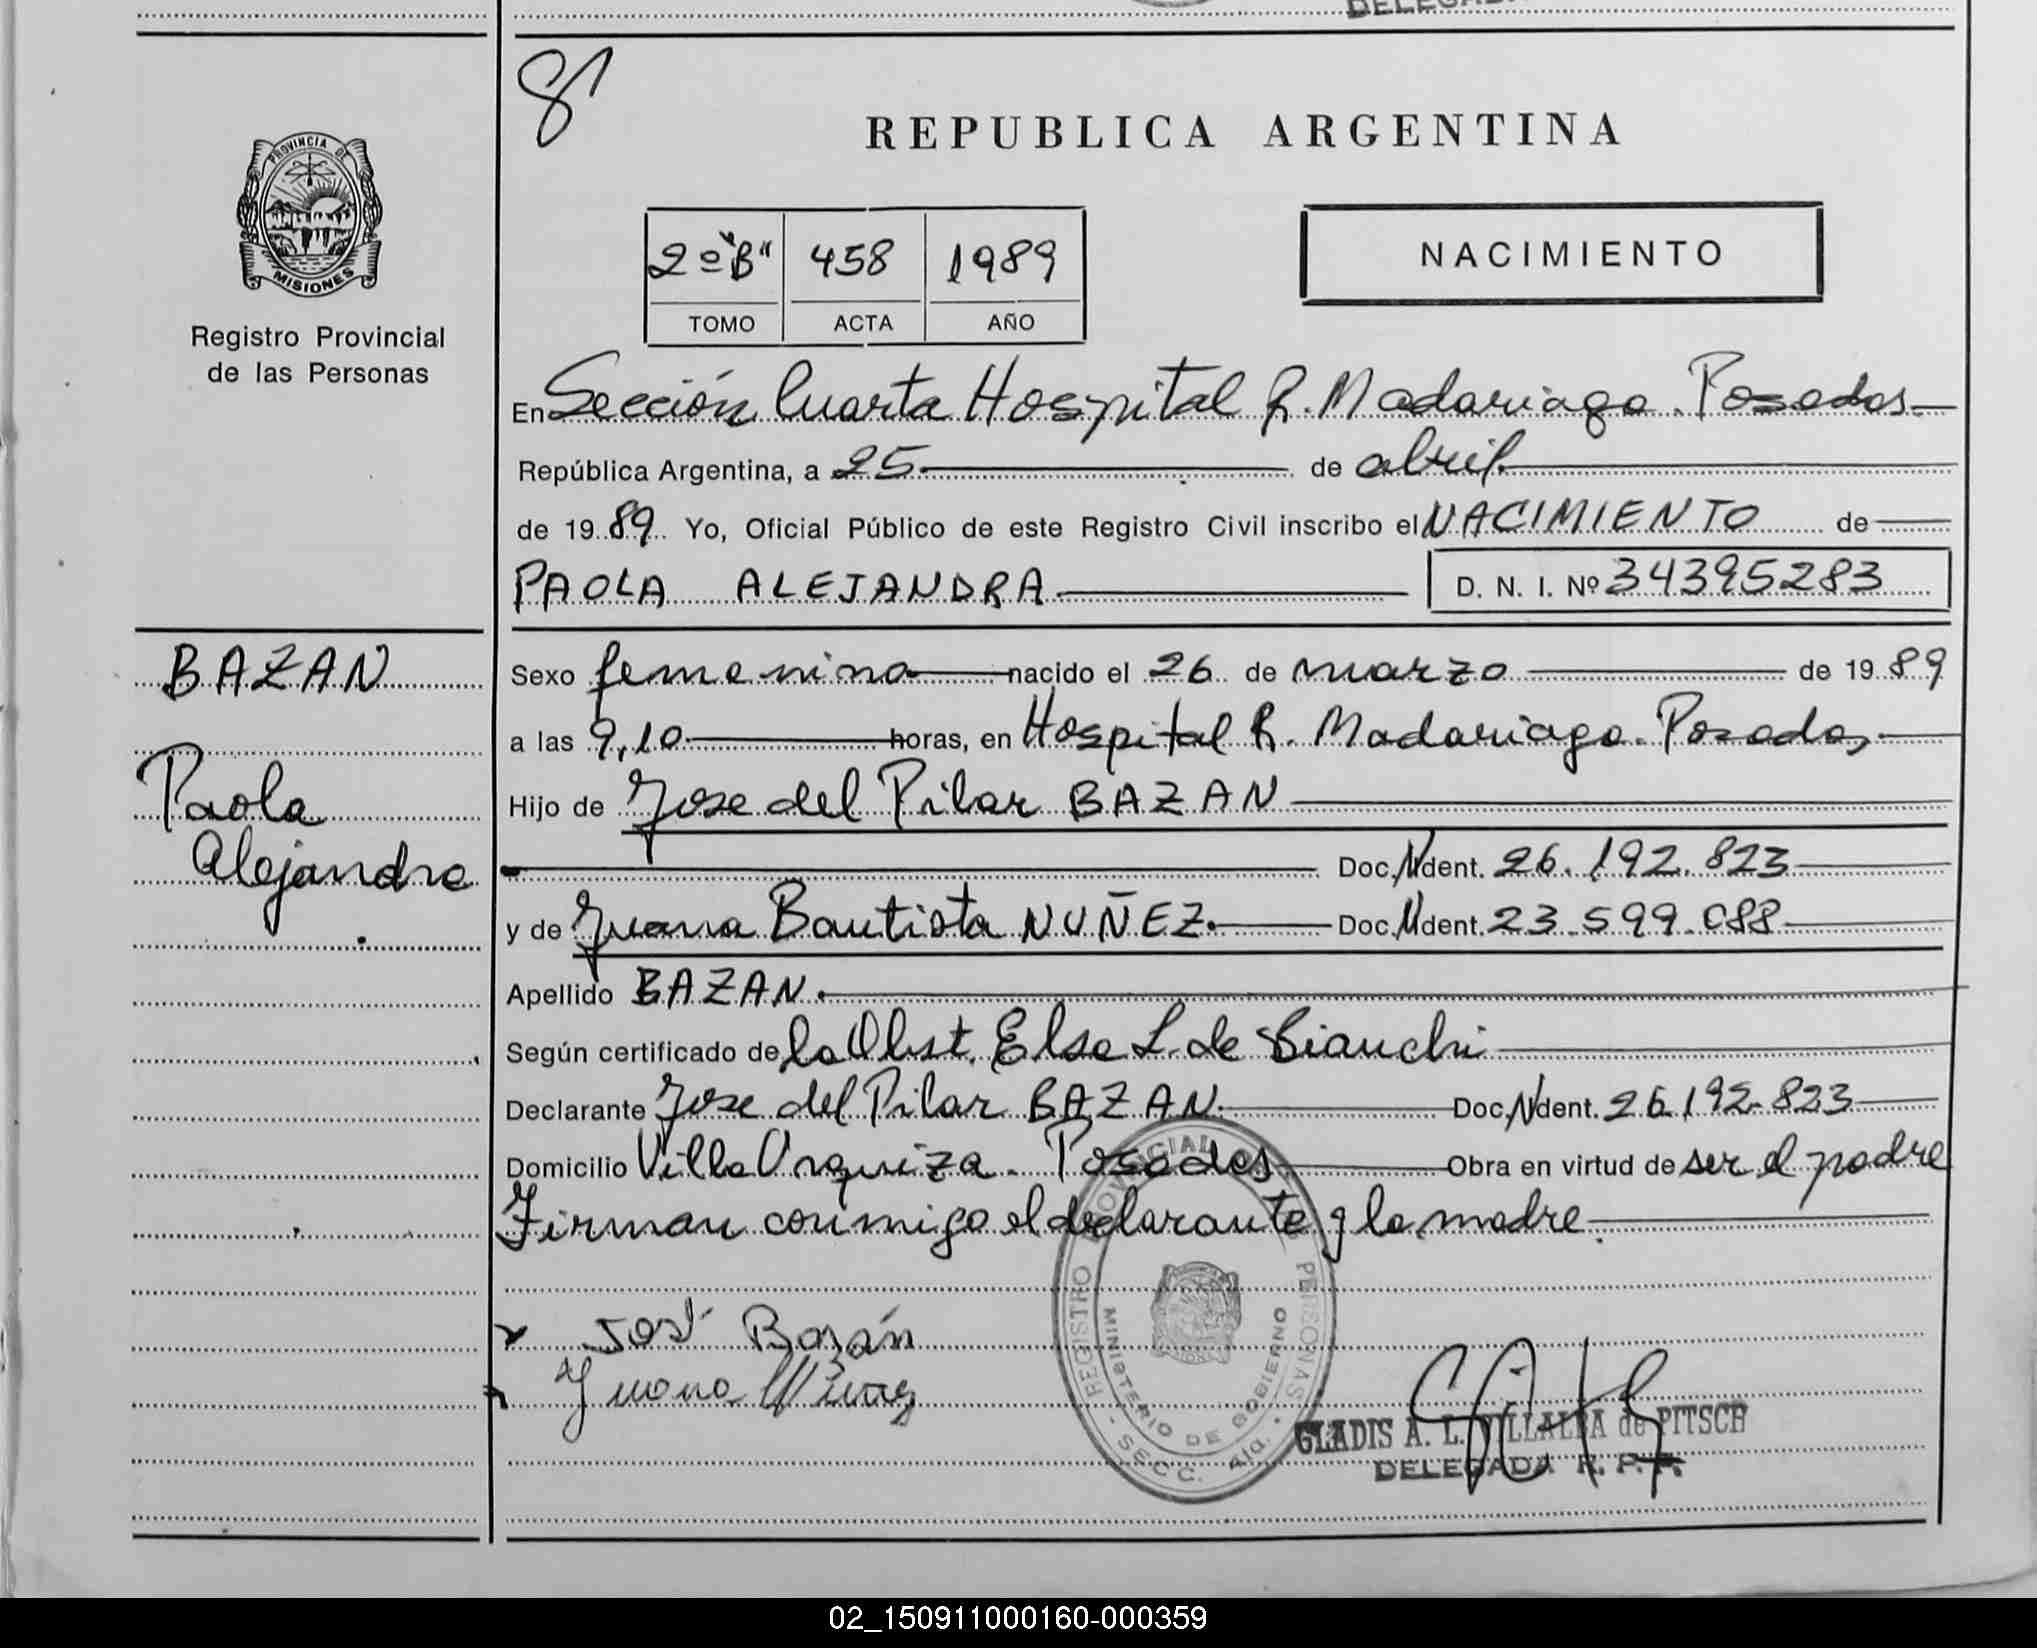 DELEGADA
8
REPUBLICA ARGENTINA
PROVINCIA DE
MISIONES
2º "B" 458 1989
TOMO ACTA AÑO
NACIMIENTO
Registro Provincial
de las Personas
En Sección Cuarta Hospital R. Madariaga. Posadas
República Argentina, a 25 de abril
de 19 89 Yo, Oficial Público de este Registro Civil inscribo el NACIMIENTO de
PAOLA ALEJANDRA D. N. I. Nº 34395283
BAZAN
Paola
Alejandra
Sexo femenino nacido el 26 de marzo de 19 89
a las 9,10 horas, en Hospital R. Madariaga. Posadas
Hijo de Jose del Pilar BAZAN
Doc. Ident. 26.192.823
y de Juana Bautista NUÑEZ. Doc. Ident. 23.599.088
Apellido BAZAN.
Según certificado de la Obst. Elsa L. de Bianchi
Declarante Jose del Pilar BAZAN. Doc. Ident. 26192.823
Domicilio Villa Urquiza. Posadas Obra en virtud de ser el padre
Firman conmigo el declarante y la madre.
José Bazán
Juana Nuñez
REGISTRO PROVINCIAL PERSONAS
MINISTERIO DE GOBIERNO
SECC. 4ta.
GLADIS A. L. VILLALBA de PITSCH
DELEGADA R. P. P.
02_150911000160-000359